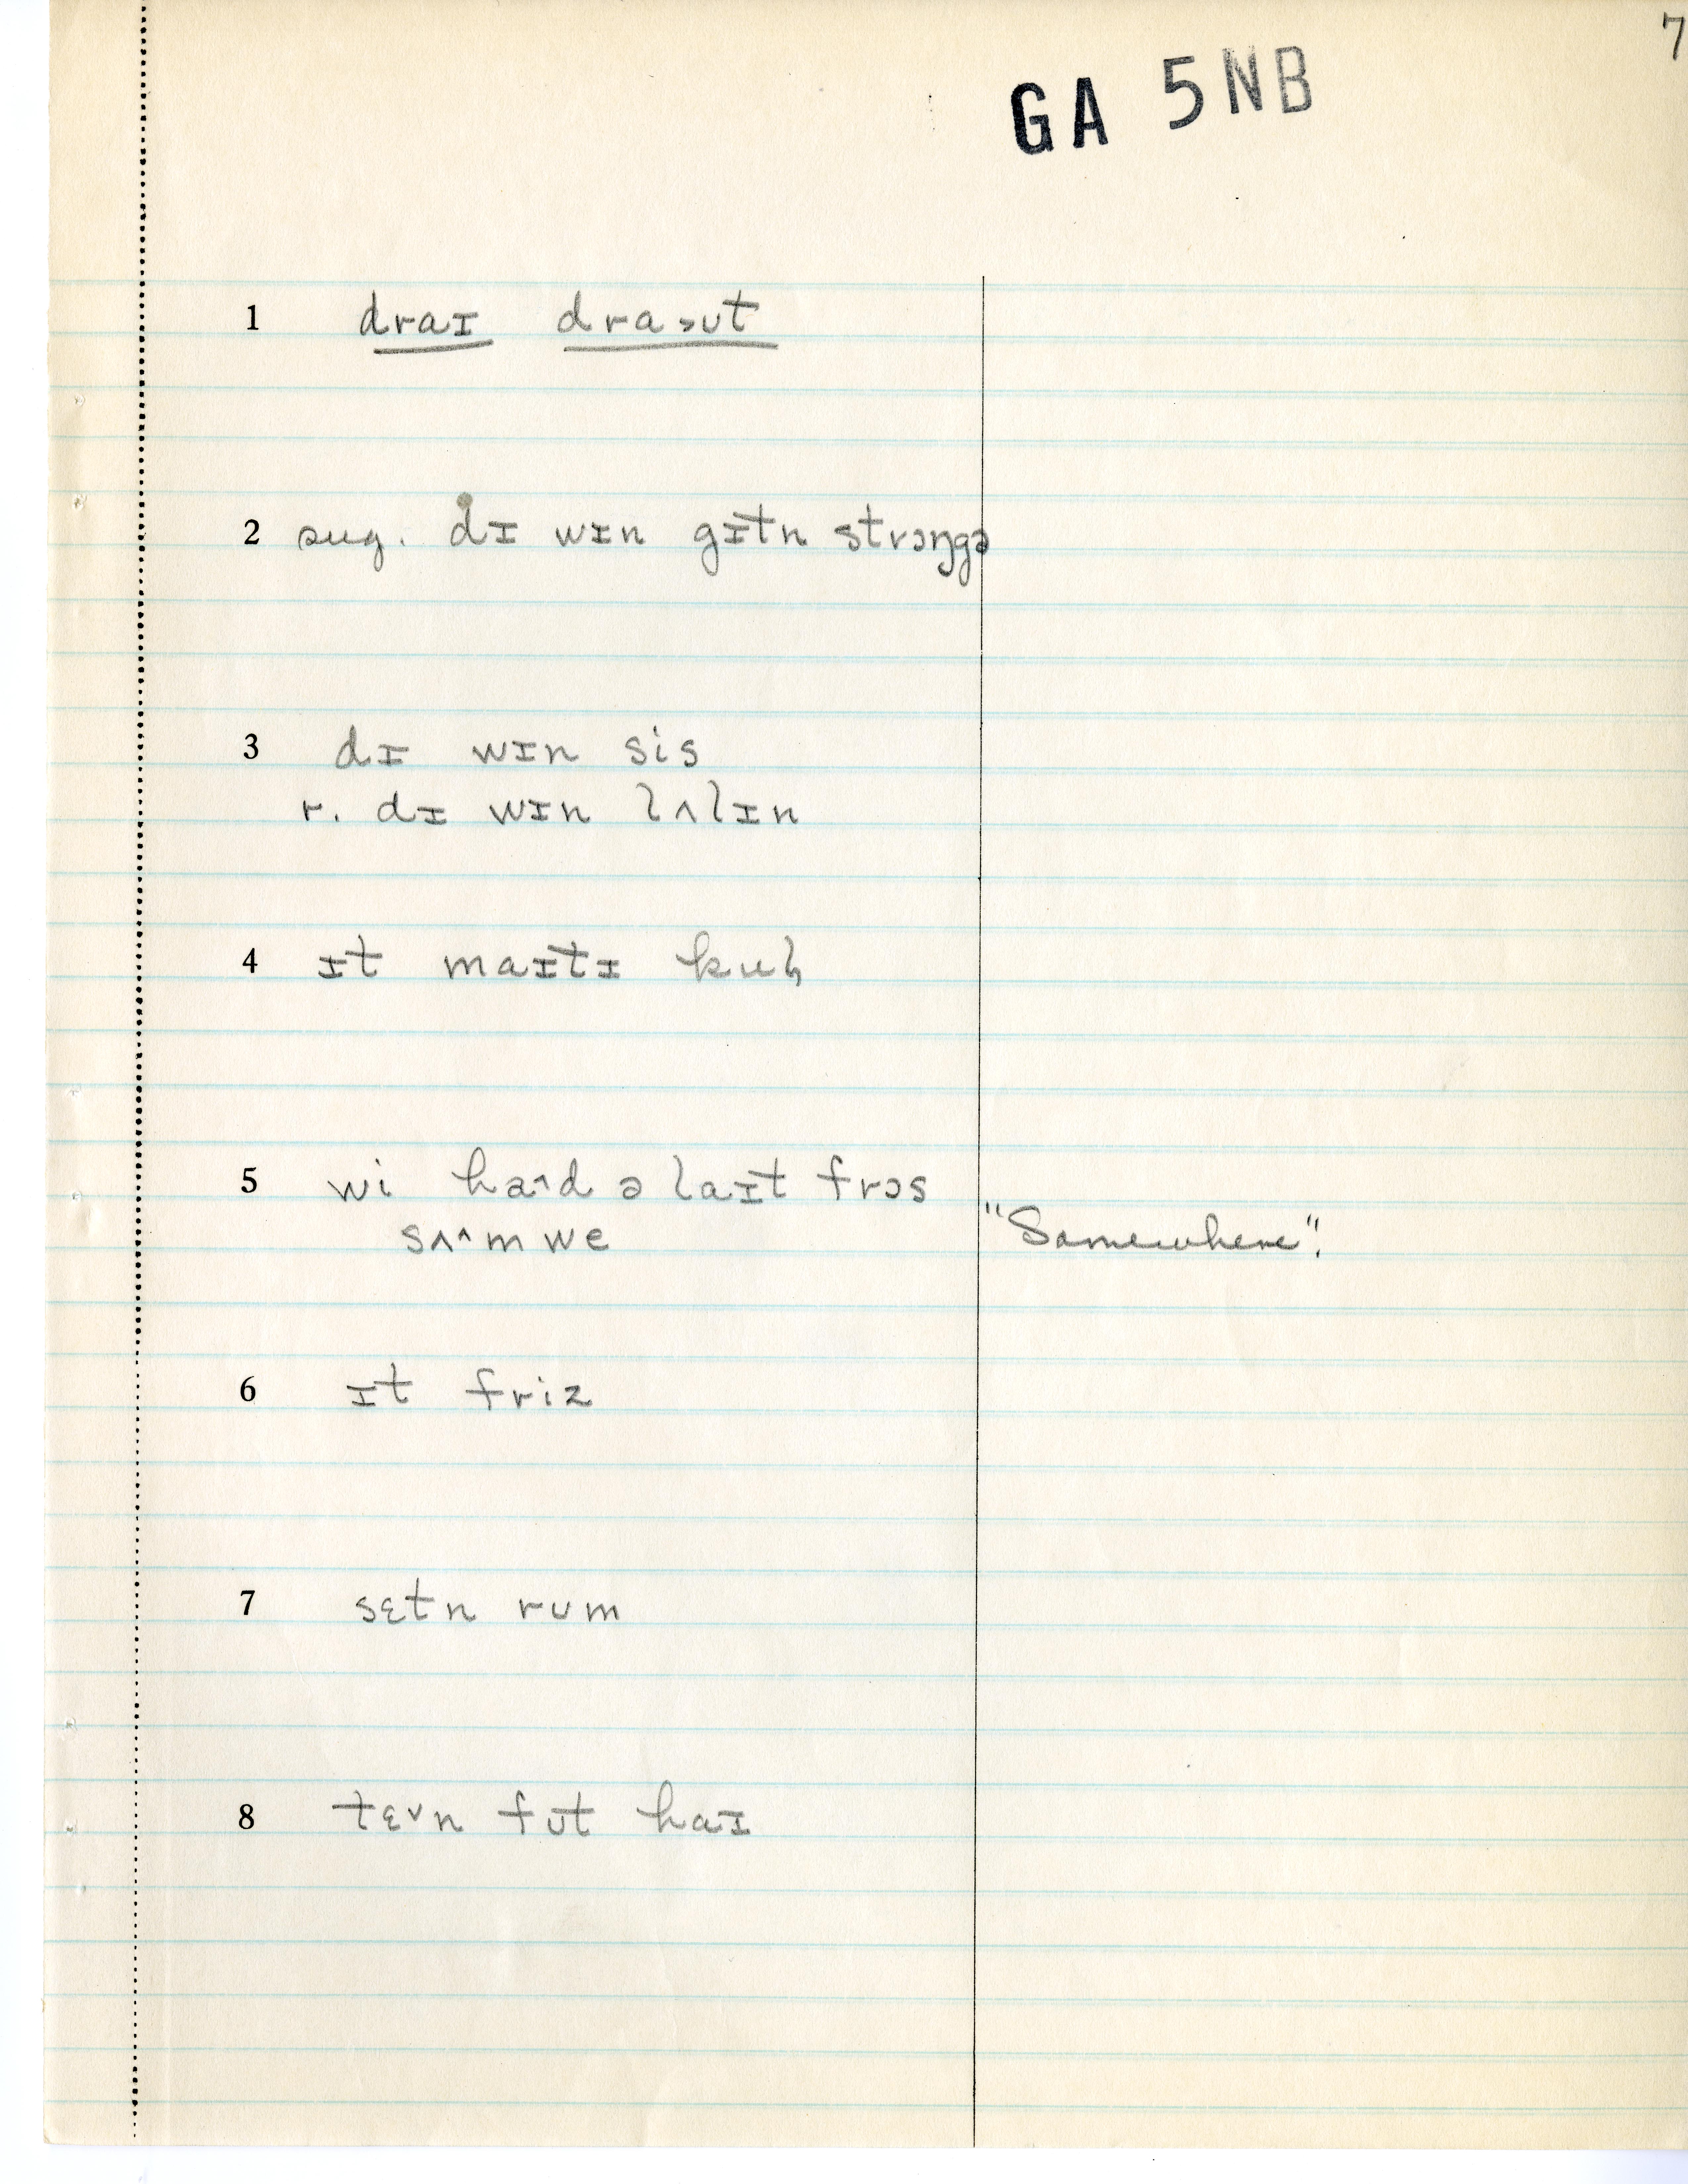 7
GA 5NB
1 draɪ draɔʊt
2 sug. dɪ wɪn gɪtn strɔŋgə
3 dɪ wɪn sis
r. dɪ wɪn lʌlɪn
4 ɪt maɪtɪ kul̩
5 wi ha^d ə laɪt frɔs
sʌ^m we "Somewhere".
6 ɪt friz
7 sɛtn rʊm
8 tɛ˅n fʊt haɪ